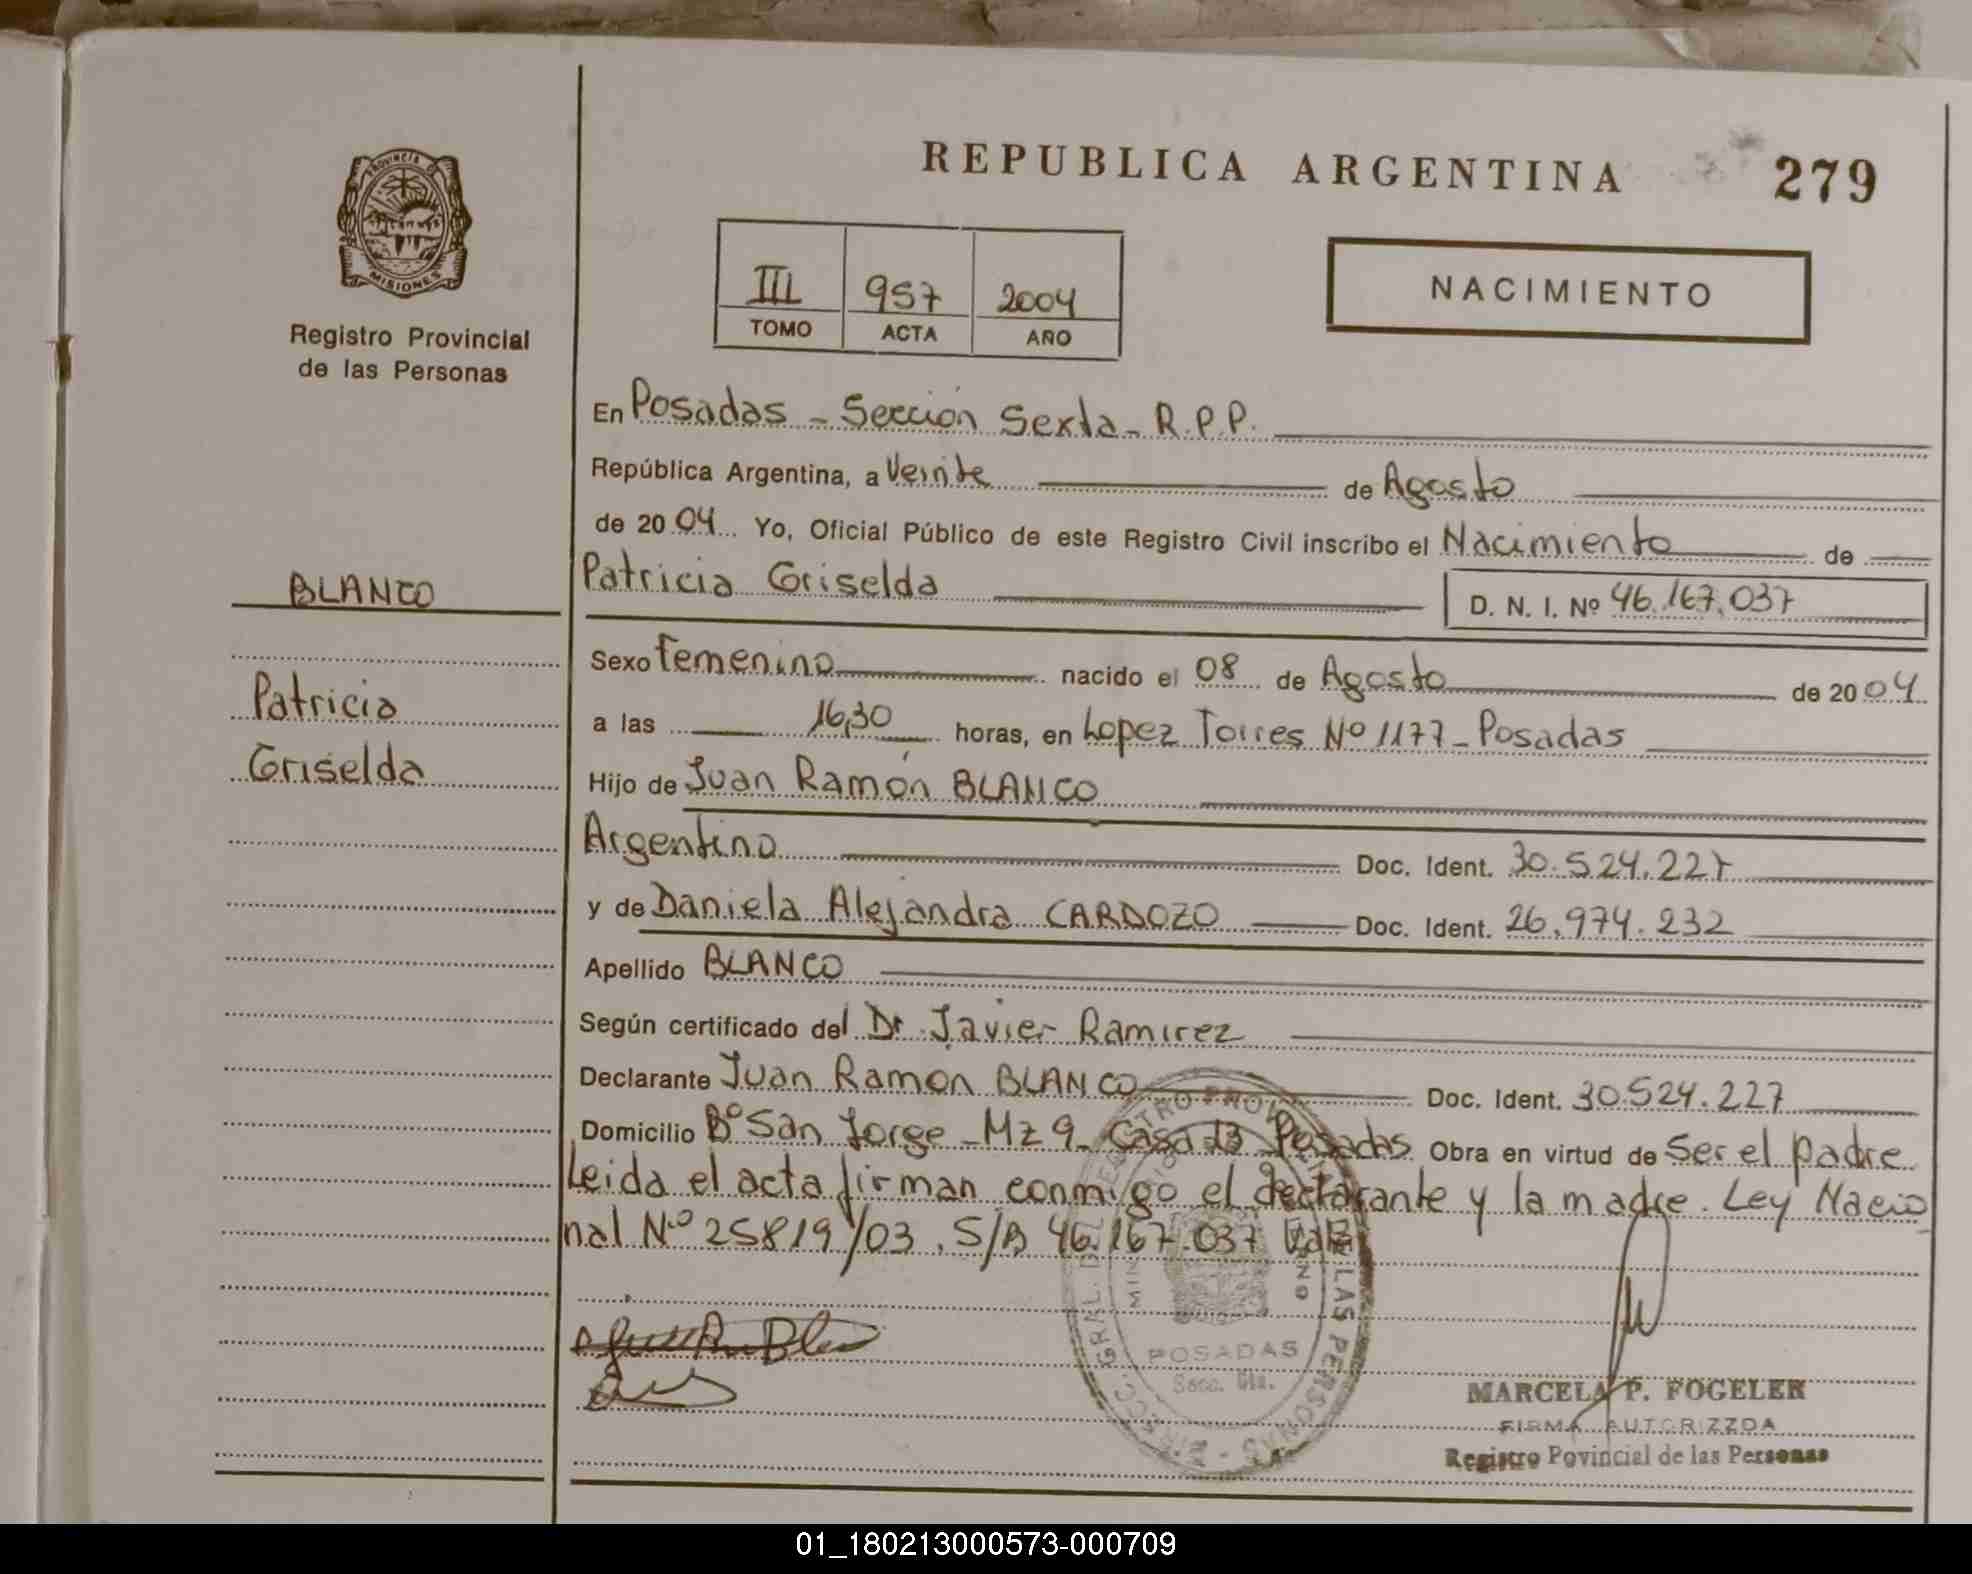 REPUBLICA ARGENTINA 279
PROVINCIA D
MISIONES
Registro Provincial
de las Personas
III 957 2004
TOMO ACTA AÑO
NACIMIENTO
En Posadas - Sección Sexta - R.P.P.
República Argentina, a Veinte de Agosto
de 2004 Yo, Oficial Público de este Registro Civil inscribo el Nacimiento de
BLANCO
Patricia Griselda D. N. I. Nº 46.167.037
Sexo Femenino nacido el 08 de Agosto de 2004
Patricia
a las 16,30 horas, en Lopez Torres Nº 1177 - Posadas
Griselda
Hijo de Juan Ramón BLANCO
Argentino Doc. Ident. 30.524.227
y de Daniela Alejandra CARDOZO Doc. Ident. 26.974.232
Apellido BLANCO
Según certificado del Dr. Javier Ramirez
Declarante Juan Ramon BLANCO Doc. Ident. 30.524.227
Domicilio Bº San Jorge - Mz 9 - Casa 13 Posadas Obra en virtud de Ser el padre
Leida el acta firman conmigo el declarante y la madre. Ley Nacio
nal Nº 25819/03. S/B 46.167.037 Vale
POSADAS
Secc. 6ta.
MARCELA P. FOGELER
FIRMA AUTORIZZDA
Registro Povincial de las Personas
01_180213000573-000709